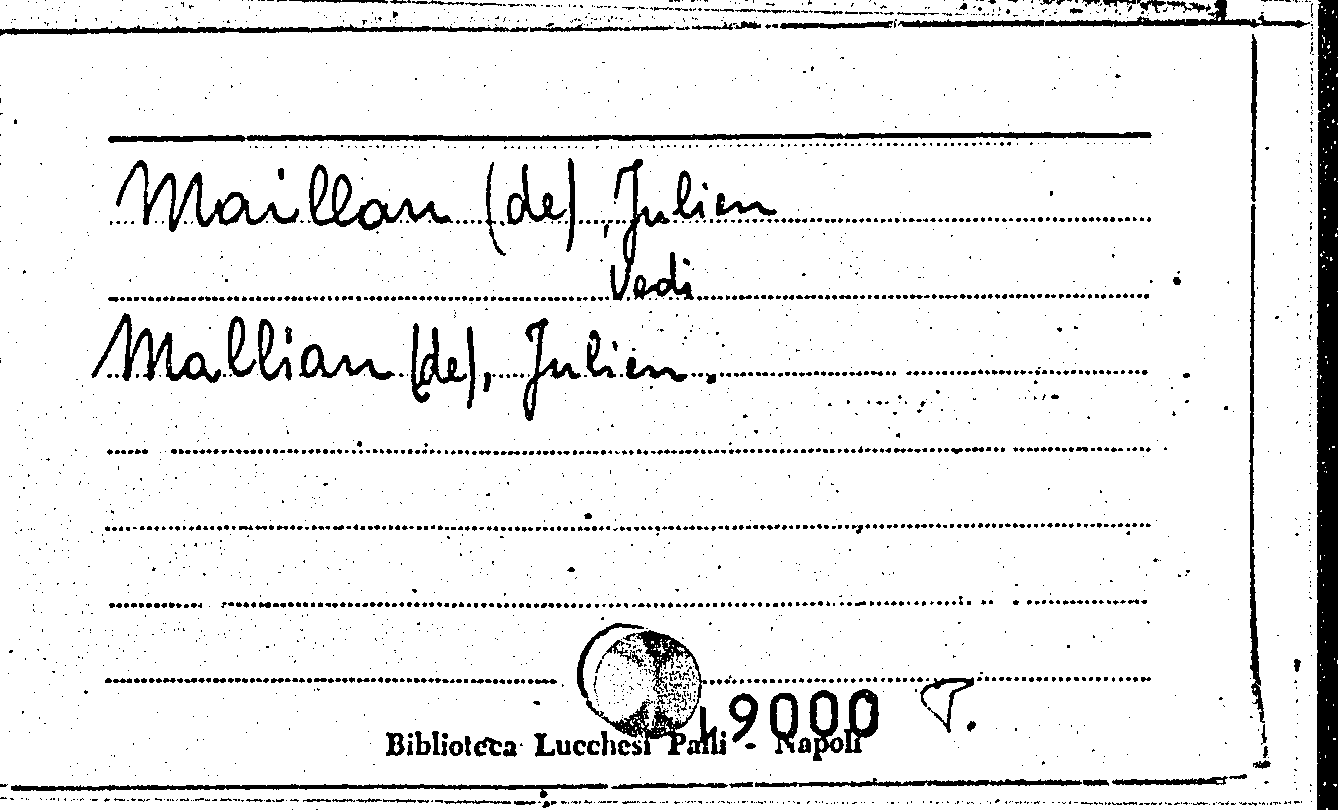 Maillan (de), Julien
Vedi
Mallian (de), Julien.
19000 T.
Biblioteca Lucchesi Palli - Napoli